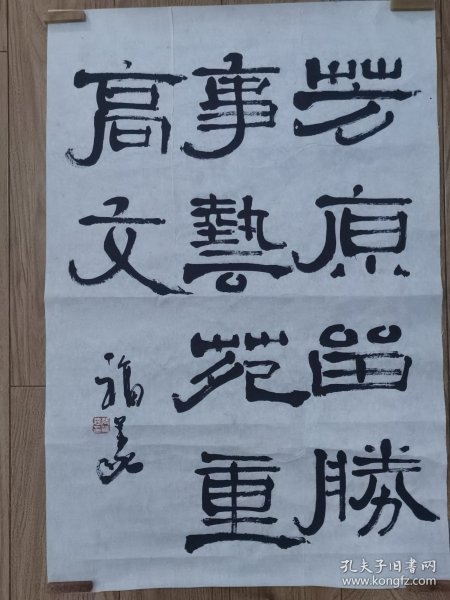 芳原留勝
事藝苑重
高文
福
孔夫子旧书网
www.kongfz.com